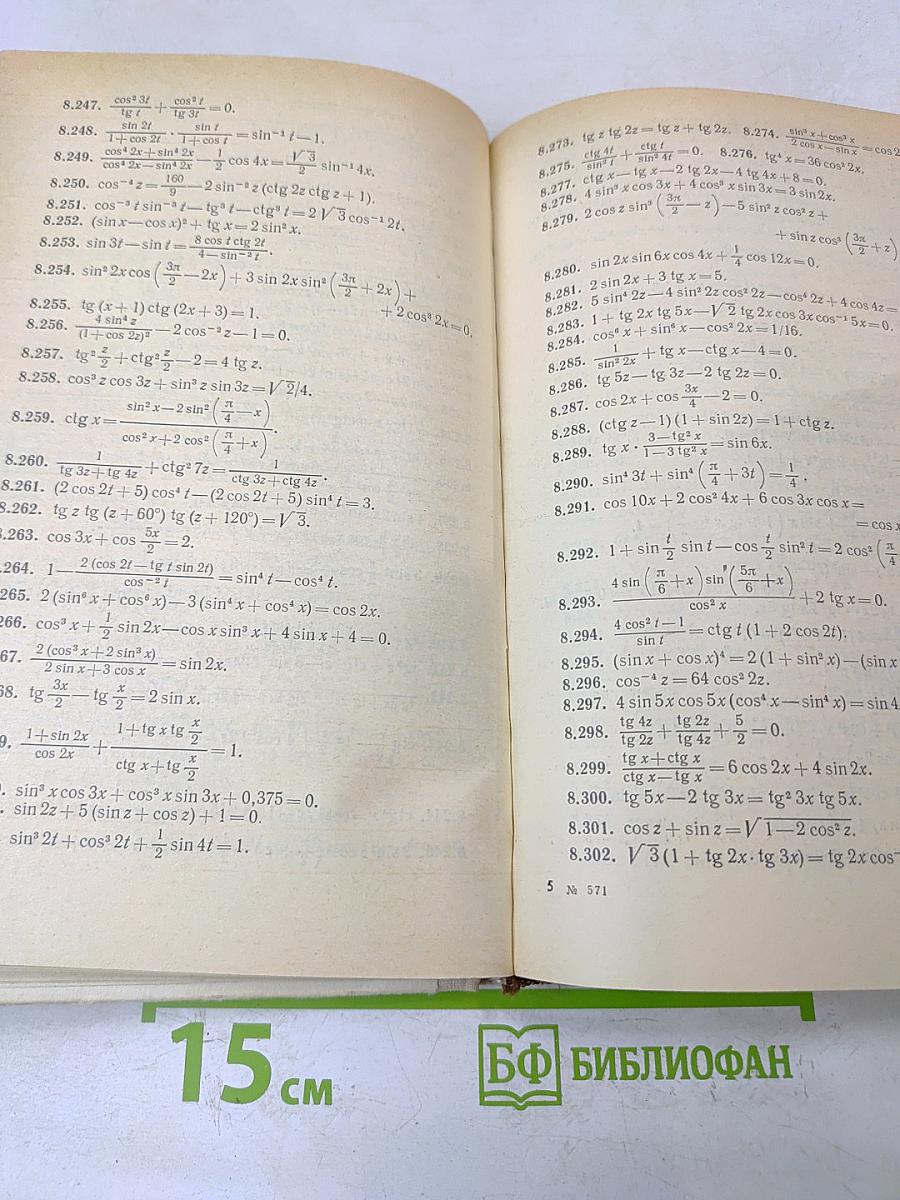 8.247. cos² 3t / tg t + cos² t / tg 3t = 0.
8.248. sin 2t / (1 + cos 2t) · sin t / (1 + cos t) = sin⁻¹ t — 1.
8.249. (cos⁴ 2x + sin⁴ 2x) / (cos⁴ 2x — sin⁴ 2x) — 1/2 cos 4x = √3/2 sin⁻¹ 4x.
8.250. cos⁻⁴ z = 160/9 — 2 sin⁻² z (ctg 2z ctg z + 1).
8.251. cos⁻³ t sin⁻³ t — tg³ t — ctg³ t = 2 √3 cos⁻¹ 2t.
8.252. (sin x — cos x)² + tg x = 2 sin² x.
8.253. sin 3t — sin t = 8 cos t ctg 2t / (4 — sin⁻² t).
8.254. sin³ 2x cos (3π/2 — 2x) + 3 sin 2x sin² (3π/2 + 2x) +
+ 2 cos³ 2x = 0.
8.255. tg (x + 1) ctg (2x + 3) = 1.
8.256. 4 sin⁴ z / (1 + cos 2z)² — 2 cos⁻² z — 1 = 0.
8.257. tg² z/2 + ctg² z/2 — 2 = 4 tg z.
8.258. cos³ z cos 3z + sin³ z sin 3z = √2/4.
8.259. ctg x = (sin² x — 2 sin² (π/4 — x)) / (cos² x + 2 cos² (π/4 + x)).
8.260. 1 / (tg 3z + tg 4z) + ctg² 7z = 1 / (ctg 3z + ctg 4z).
8.261. (2 cos 2t + 5) cos⁴ t — (2 cos 2t + 5) sin⁴ t = 3.
8.262. tg z tg (z + 60°) tg (z + 120°) = √3.
.263. cos 3x + cos 5x/2 = 2.
264. 1 — 2 (cos 2t — tg t sin 2t) / cos⁻² t = sin⁴ t — cos⁴ t.
265. 2 (sin⁶ x + cos⁶ x) — 3 (sin⁴ x + cos⁴ x) = cos 2x.
266. cos³ x + 1/2 sin 2x — cos x sin³ x + 4 sin x + 4 = 0.
67. 2 (cos³ x + 2 sin³ x) / (2 sin x + 3 cos x) = sin 2x.
68. tg 3x/2 — tg x/2 = 2 sin x.
9. (1 + sin 2x) / cos 2x + (1 + tg x tg x/2) / (ctg x + tg x/2) = 1.
. sin³ x cos 3x + cos³ x sin 3x + 0,375 = 0.
. sin 2z + 5 (sin z + cos z) + 1 = 0.
sin³ 2t + cos³ 2t + 1/2 sin 4t = 1.
8.273. tg z tg 2z = tg z + tg 2z. 8.274. (sin³ x + cos³ x) / (2 cos x — sin x) = cos 2
8.275. ctg 4t / sin² t + ctg t / sin² 4t = 0. 8.276. tg⁴ x = 36 cos² 2x.
8.277. ctg x — tg x — 2 tg 2x — 4 tg 4x + 8 = 0.
8.278. 4 sin³ x cos 3x + 4 cos³ x sin 3x = 3 sin 2x.
8.279. 2 cos z sin³ (3π/2 — z) — 5 sin² z cos² z +
+ sin z cos³ (3π/2 + z)
8.280. sin 2x sin 6x cos 4x + 1/4 cos 12x = 0.
8.281. 2 sin 2x + 3 tg x = 5.
8.282. 5 sin⁴ 2z — 4 sin² 2z cos² 2z — cos⁴ 2z + 4 cos 4z =
8.283. 1 + tg 2x tg 5x — √2 tg 2x cos 3x cos⁻¹ 5x = 0.
8.284. cos⁶ x + sin⁶ x — cos² 2x = 1/16.
8.285. 1 / sin² 2x + tg x — ctg x — 4 = 0.
8.286. tg 5z — tg 3z — 2 tg 2z = 0.
8.287. cos 2x + cos 3x/4 — 2 = 0.
8.288. (ctg z — 1) (1 + sin 2z) = 1 + ctg z.
8.289. tg x · (3 — tg² x) / (1 — 3 tg² x) = sin 6x.
8.290. sin⁴ 3t + sin⁴ (π/4 + 3t) = 1/4.
8.291. cos 10x + 2 cos² 4x + 6 cos 3x cos x =
= cos x
8.292. 1 + sin t/2 sin t — cos t/2 sin² t = 2 cos² (π/4
8.293. 4 sin (π/6 + x) sin (5π/6 + x) / cos² x + 2 tg x = 0.
8.294. (4 cos² t — 1) / sin t = ctg t (1 + 2 cos 2t).
8.295. (sin x + cos x)⁴ = 2 (1 + sin² x) — (sin x
8.296. cos⁻⁴ z = 64 cos² 2z.
8.297. 4 sin 5x cos 5x (cos⁴ x — sin⁴ x) = sin 4
8.298. tg 4z / tg 2z + tg 2z / tg 4z + 5/2 = 0.
8.299. (tg x + ctg x) / (ctg x — tg x) = 6 cos 2x + 4 sin 2x.
8.300. tg 5x — 2 tg 3x = tg² 3x tg 5x.
8.301. cos z + sin z = √(1 — 2 cos² z).
8.302. √3 (1 + tg 2x · tg 3x) = tg 2x cos⁻
5 № 571
15 см
БФ БИБЛИОФАН